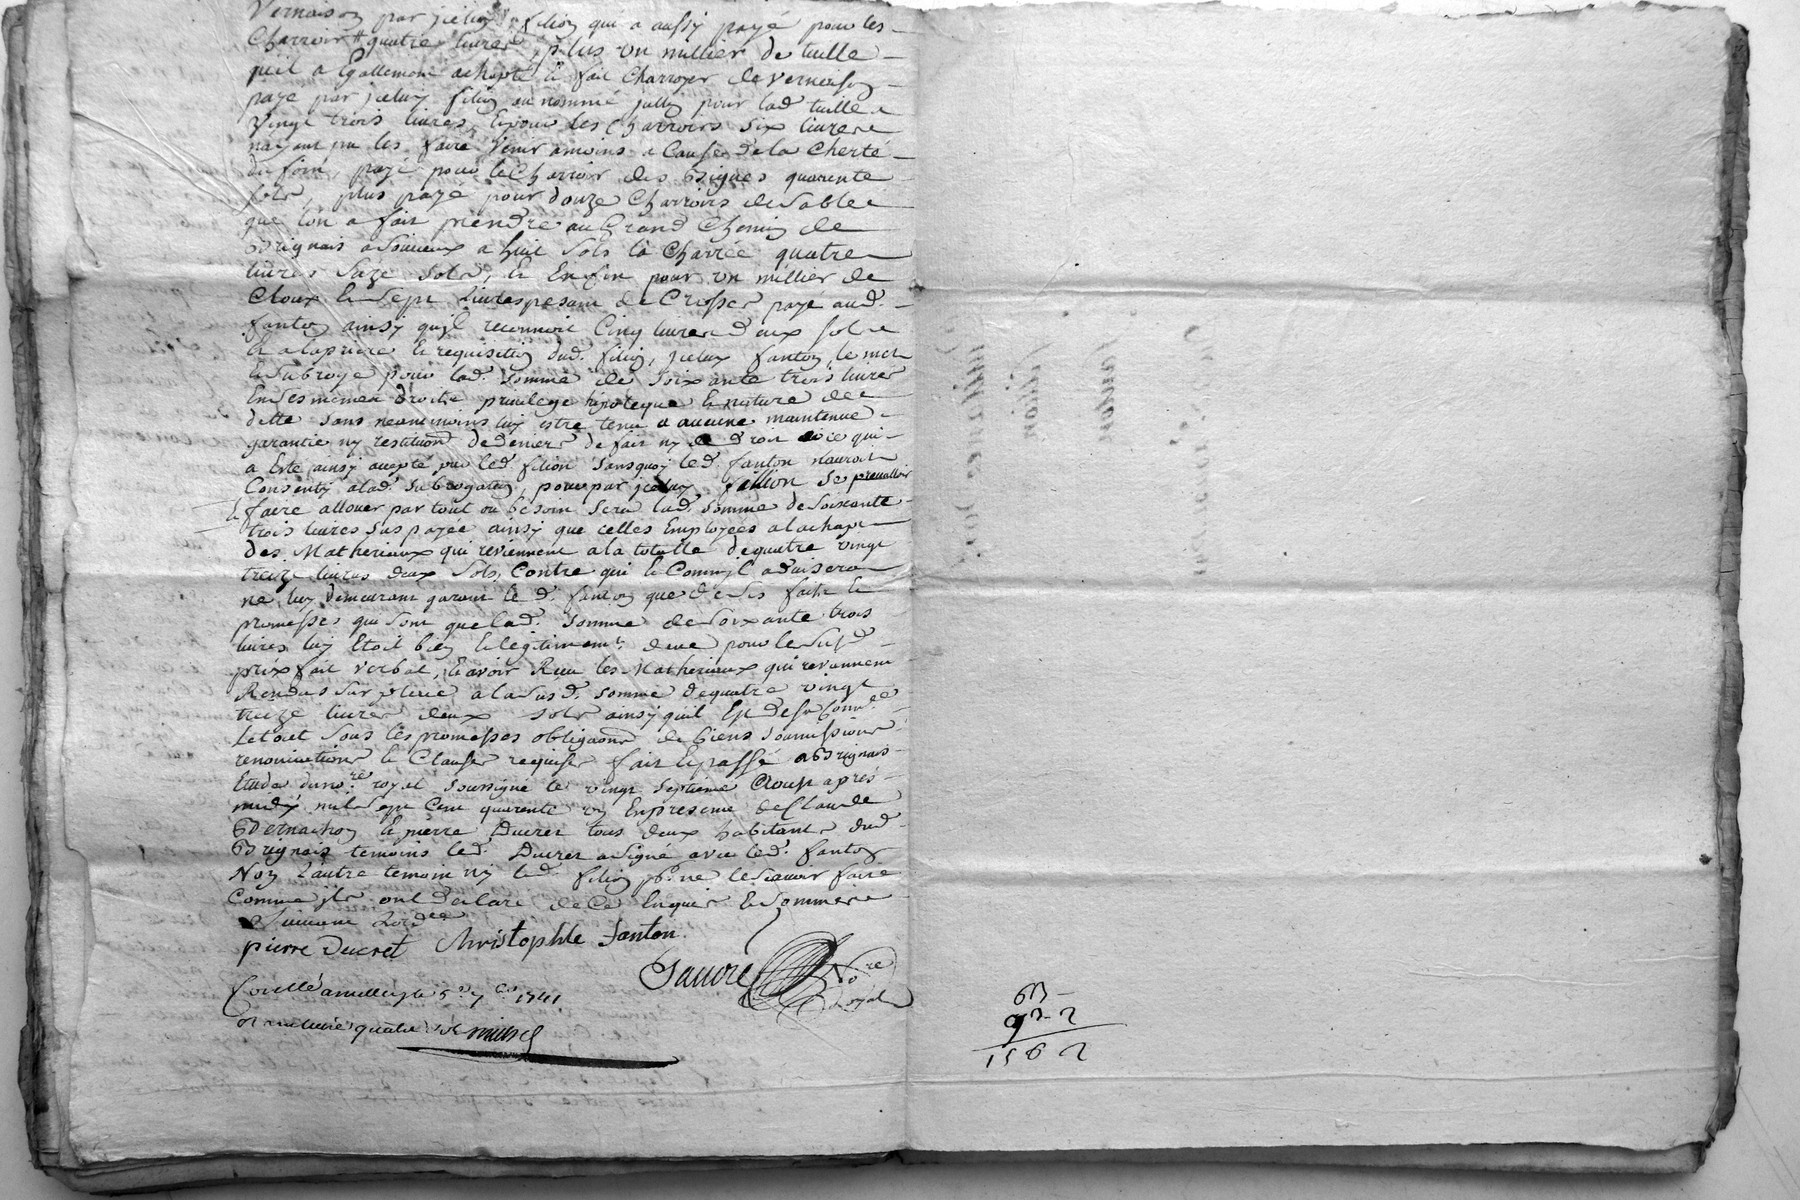 Vernaison par jceluy filion qui a aussy payé pour les
Charroir quatre livres, plus un millier de tuille
quil a Egallement achepté & fait charroyer de vernaison
payé par jceluy filion au nommé jully pour lad. tuille
vingt trois livres, Et pour les Charroirs six livres
nayant pu les faire venir amoins a Cause de la Cherté
du foin, payé pour le Charroir des Briques quarente
sols, plus payé pour douze Charroirs de Sable
que lon a fait prendre au Grand Chemin de
Brignais a huit sols la Charrée quatre
livres saze sols, & Enfin pour un millier de
Cloux & sept livres pesant de Crosses payé aud.
fanton ainsy qujl reconnoit Cinq livres deux sols
Et a la priere & requisition dud. filion, jceluy fanton, le met
& subroge pour lad. somme de soixante trois livres
En ses mesmes droits privilege hipoteque & nature de
dette sans neanmoins luy estre tenu a aucune maintenue
garantie ny restitution de deniers de fait ny de droit ce qui
a Esté ainsy accepté par led. filion sans quoy led. fanton nauroit
Consenty a lad. subrogation, pour par jceluy fillion se prevalloir
& faire allouer par tout ou besoin sera lad. somme de soixante
trois livres sus payée ainsy que celles Employées a lachapt
des Matheriaux qui reviennent a la totalle de quatre vingt
treize livres deux sols, Contre qui & Comm jl advisera
ne luy demeurant garant le d. fanton que de ses faits &
promesses qui sont que lad. somme de soixante trois
livres luy Etoit bien & legitimemt. deue pour le susd.
prix fait verbal, & avoir Receu les Matheriaux qui reviennent
Rendus sur place a la susd. somme de quatre vingt
treize livres deux sols ainsy quil Est dessus
Le tout sous les promesses obligaons. de biens soumissions
renonciations & Clauses requises fait & passé a Brignais
Etude du nore. royal soussigné le vingt septieme aoust apres
midy mil sept Cent quarente un En presence de Claude
Bernachon & pierre Ducret tous deux habitants dud.
Brignais temoins led. Ducret a signé avec led. fanton
Non l'autre temoin ny led. filion pr. ne le scavoir faire
Comme jls ont declaré de Ce Enquis & sommés
Suivant Lordce
pierre Ducret Christophle fanton
Nore
Royal
1741
63 –
93 – 2
156 2